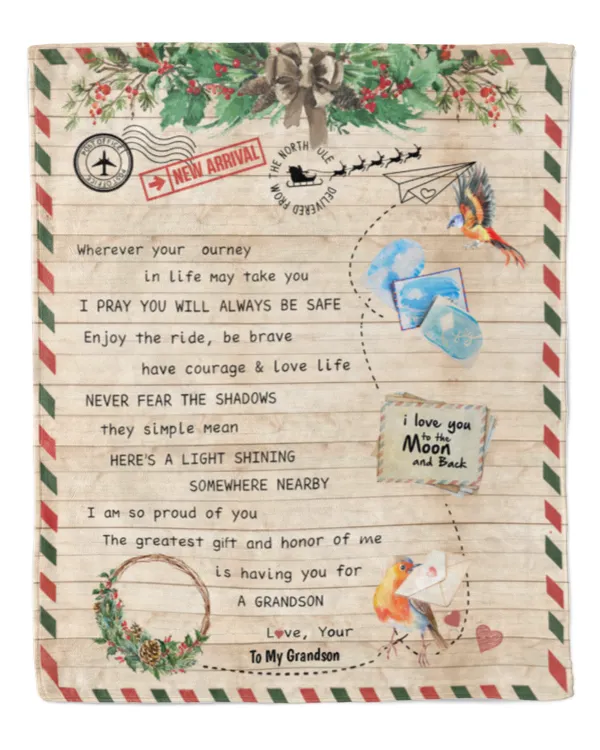 POST OFFICE
POST OFFICE
NEW ARRIVAL
THE NORTH ULE
DELIVERED FROM
Wherever your ourney
in life may take you
I PRAY YOU WILL ALWAYS BE SAFE
Enjoy the ride, be brave
have courage & love life
NEVER FEAR THE SHADOWS
they simple mean
HERE'S A LIGHT SHINING
SOMEWHERE NEARBY
I am so proud of you
The greatest gift and honor of me
is having you for
A GRANDSON
L♥ve, Your
To My Grandson
i love you
to the
Moon
and Back